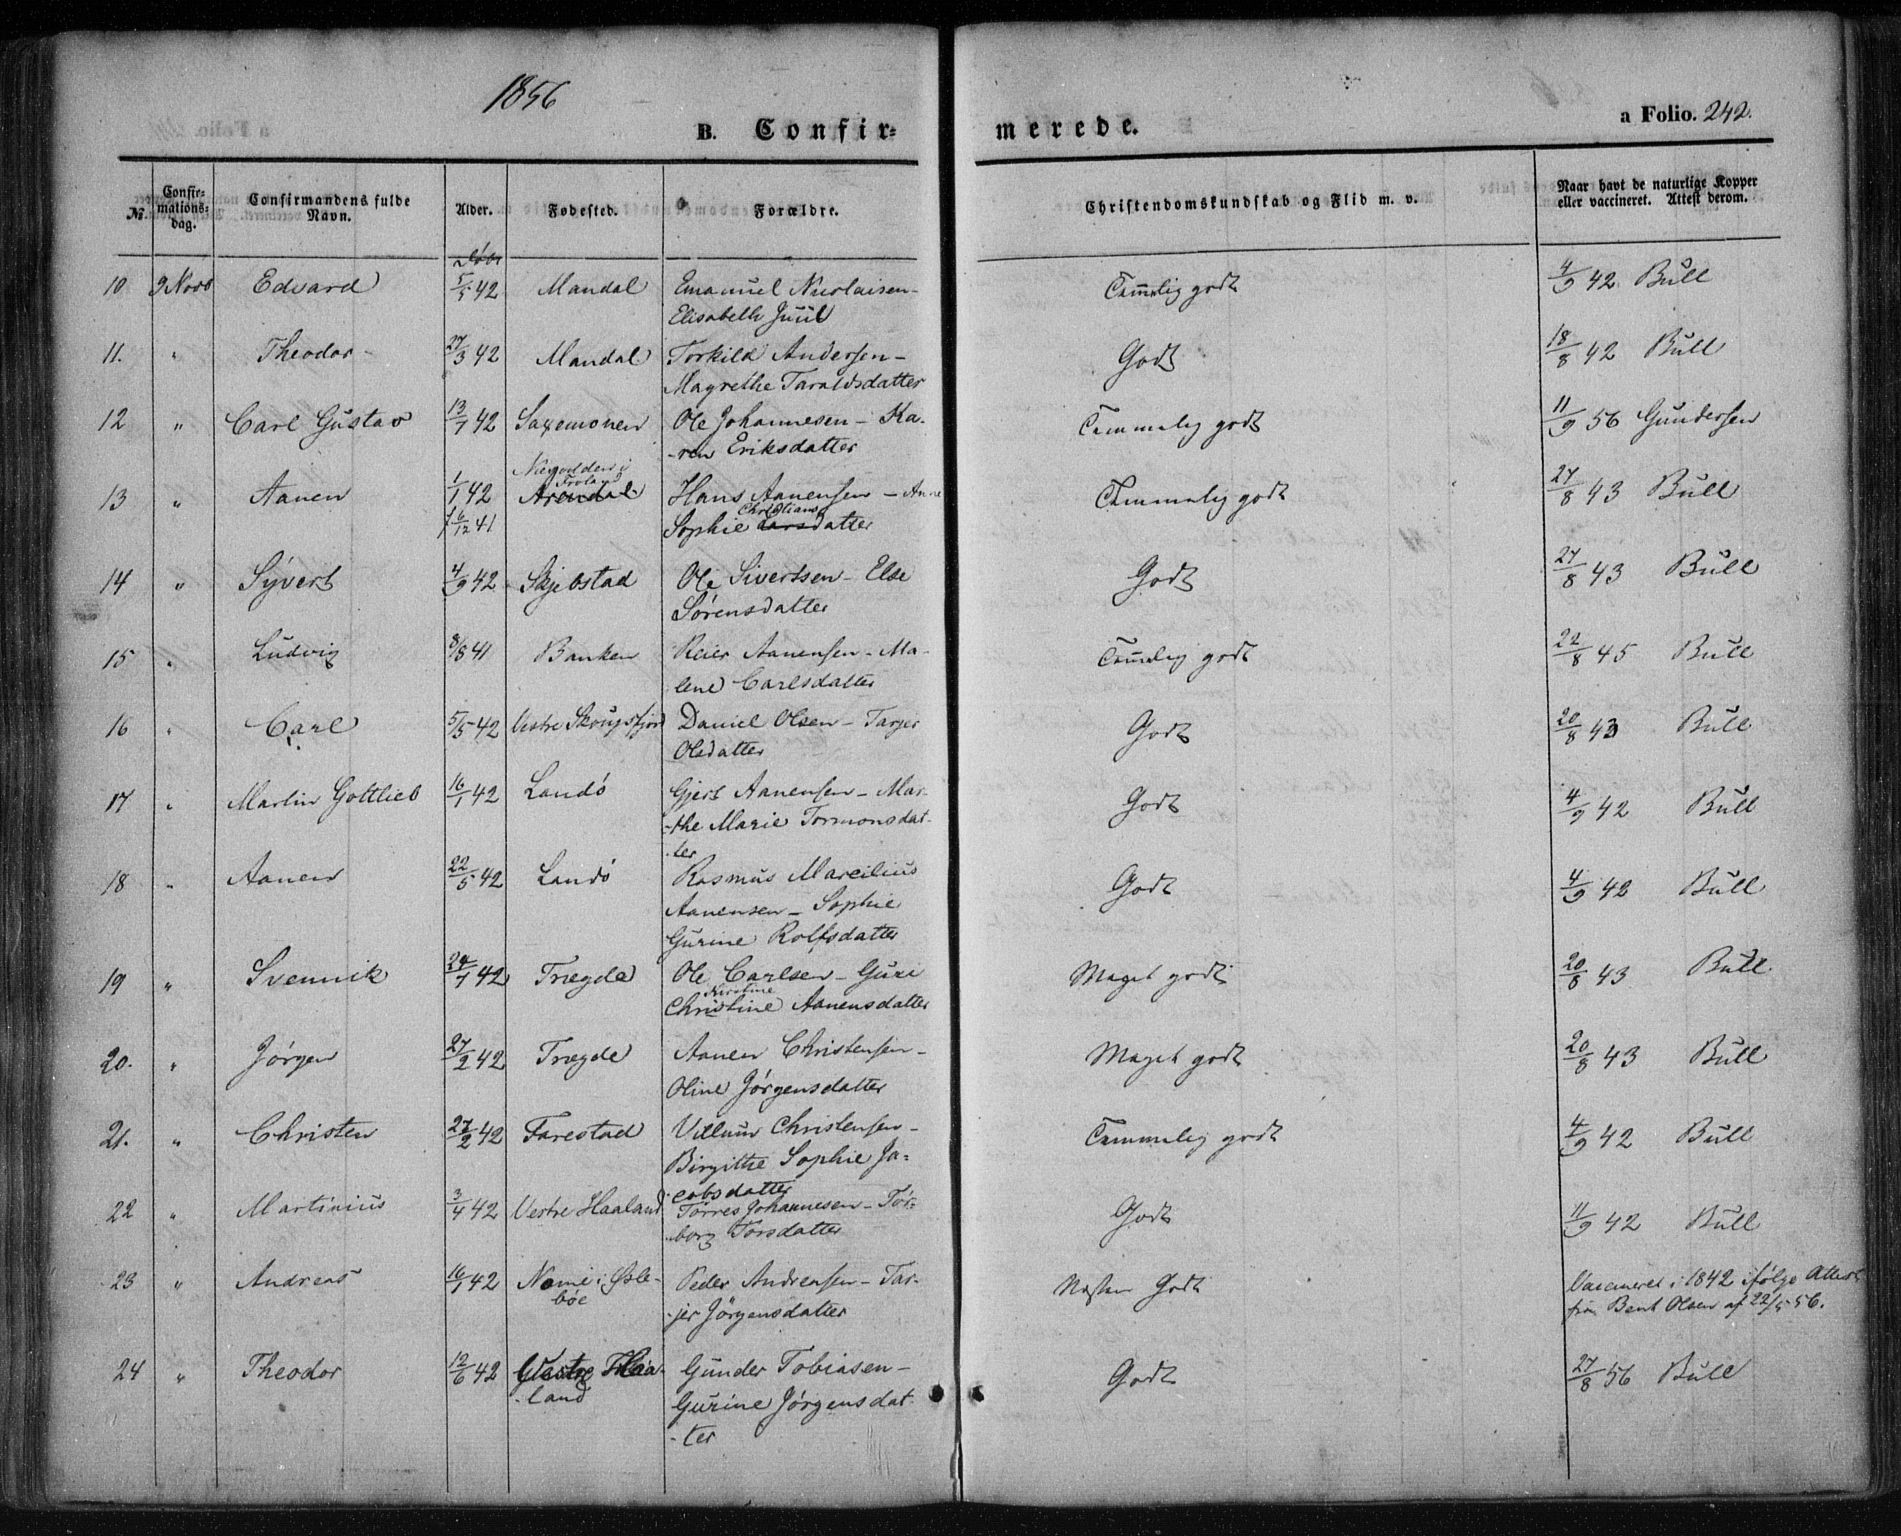 1856
B. Confir=
merede.
a Folio. 242.
№.
Confir=mations=dag.
Confirmandens fulde Navn.
Alder.
Fødested.
Forældre.
Christendomskundskab og Flid m. v.
Naar havt de naturlige Kopper eller vaccineret. Attest derom.
10 9 Novb Edvard 5/5 42 Mandal Emanuel Nicolaisen - Temlig godt 4/9 42 Bull
Elisabeth Juul
11. " Theodor 27/3 42 Mandal Torkild Andersen - Godt 18/8 42 Bull
Magrethe Taraldsdatter
12 " Carl Gustav 13/7 42 Saxemonen Ole Johannesen - Ka- Temmelig godt 11/9 56 Gundersen
-ren Eriksdatter
13 " Aanen 1/1 42 Arendal Hans Aanensen - Anne Temmelig godt 27/8 43 Bull
6/12 41 Sophie Larsdatter
Christians
14 " Syvert 4/9 42 Skjebstad Ole Sivertsen - Else Godt 27/8 43 Bull
Sörensdatter
15 " Ludvig 8/8 41 Banken Reier Aanensen - Ma- Temelig godt 22/8 45 Bull
lene Carlsdatter
16 " Carl 5/5 42 Vestre Skougsfjord Daniel Olsen - Tarjer Godt 20/8 43 Bull
Olsdatter
17 " Martin Gottlieb 16/1 42 Landö Gjert Aanensen - Mar- Godt 4/9 42 Bull
-the Marie Tormonsdat-
-ter
18 " Aanen 22/5 42 Landö Rasmus Marcilius Godt 4/9 42 Bull
Aanensen - Sophie
Gurine Rolfsdatter
19 " Svennik 24/1 42 Trægde Ole Carlsen - Guri Meget godt 20/8 43 Bull
Kirstine
Christine Aanensdatter
20. " Jörgen 27/2 42 Trægde Aanen Christensen - Meget godt 20/8 43 Bull
Oline Jörgensdatter
21. " Christen 27/2 42 Farestad Villum Christensen - Temmelig godt 4/9 42 Bull
Birgithe Sophie Ja=
cobsdatter
22 " Martinius 3/4 42 Vestre Haaland Törres Johannesen - Tör- Godt 11/9 42 Bull
-borg Torsdatter
23 " Andreas 16/1 42 Nome i Øsle- Peder Andreasen - Tar- Næsten Godt Vaccineret i 1842 ifölge Attest
böe -jer Jörgensdatter fra Bent Olsen af 22/5 56.
24 " Theodor 12/6 42 Vestre Haa- Gunder Tobiasen - Godt 27/8 56 Bull
-land Gurine Jörgensdat-
-ter